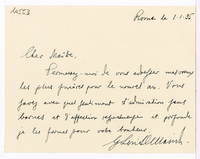 Rome le 1.1.35
Cher Maître.
Permettez-moi de vous adresser mes vœux
les plus sincères pour le nouvel an. Vous
savez avec quel sentiment d'admiration sans
bornes et d'affection respectueuse et profonde
je les forme pour votre bonheur